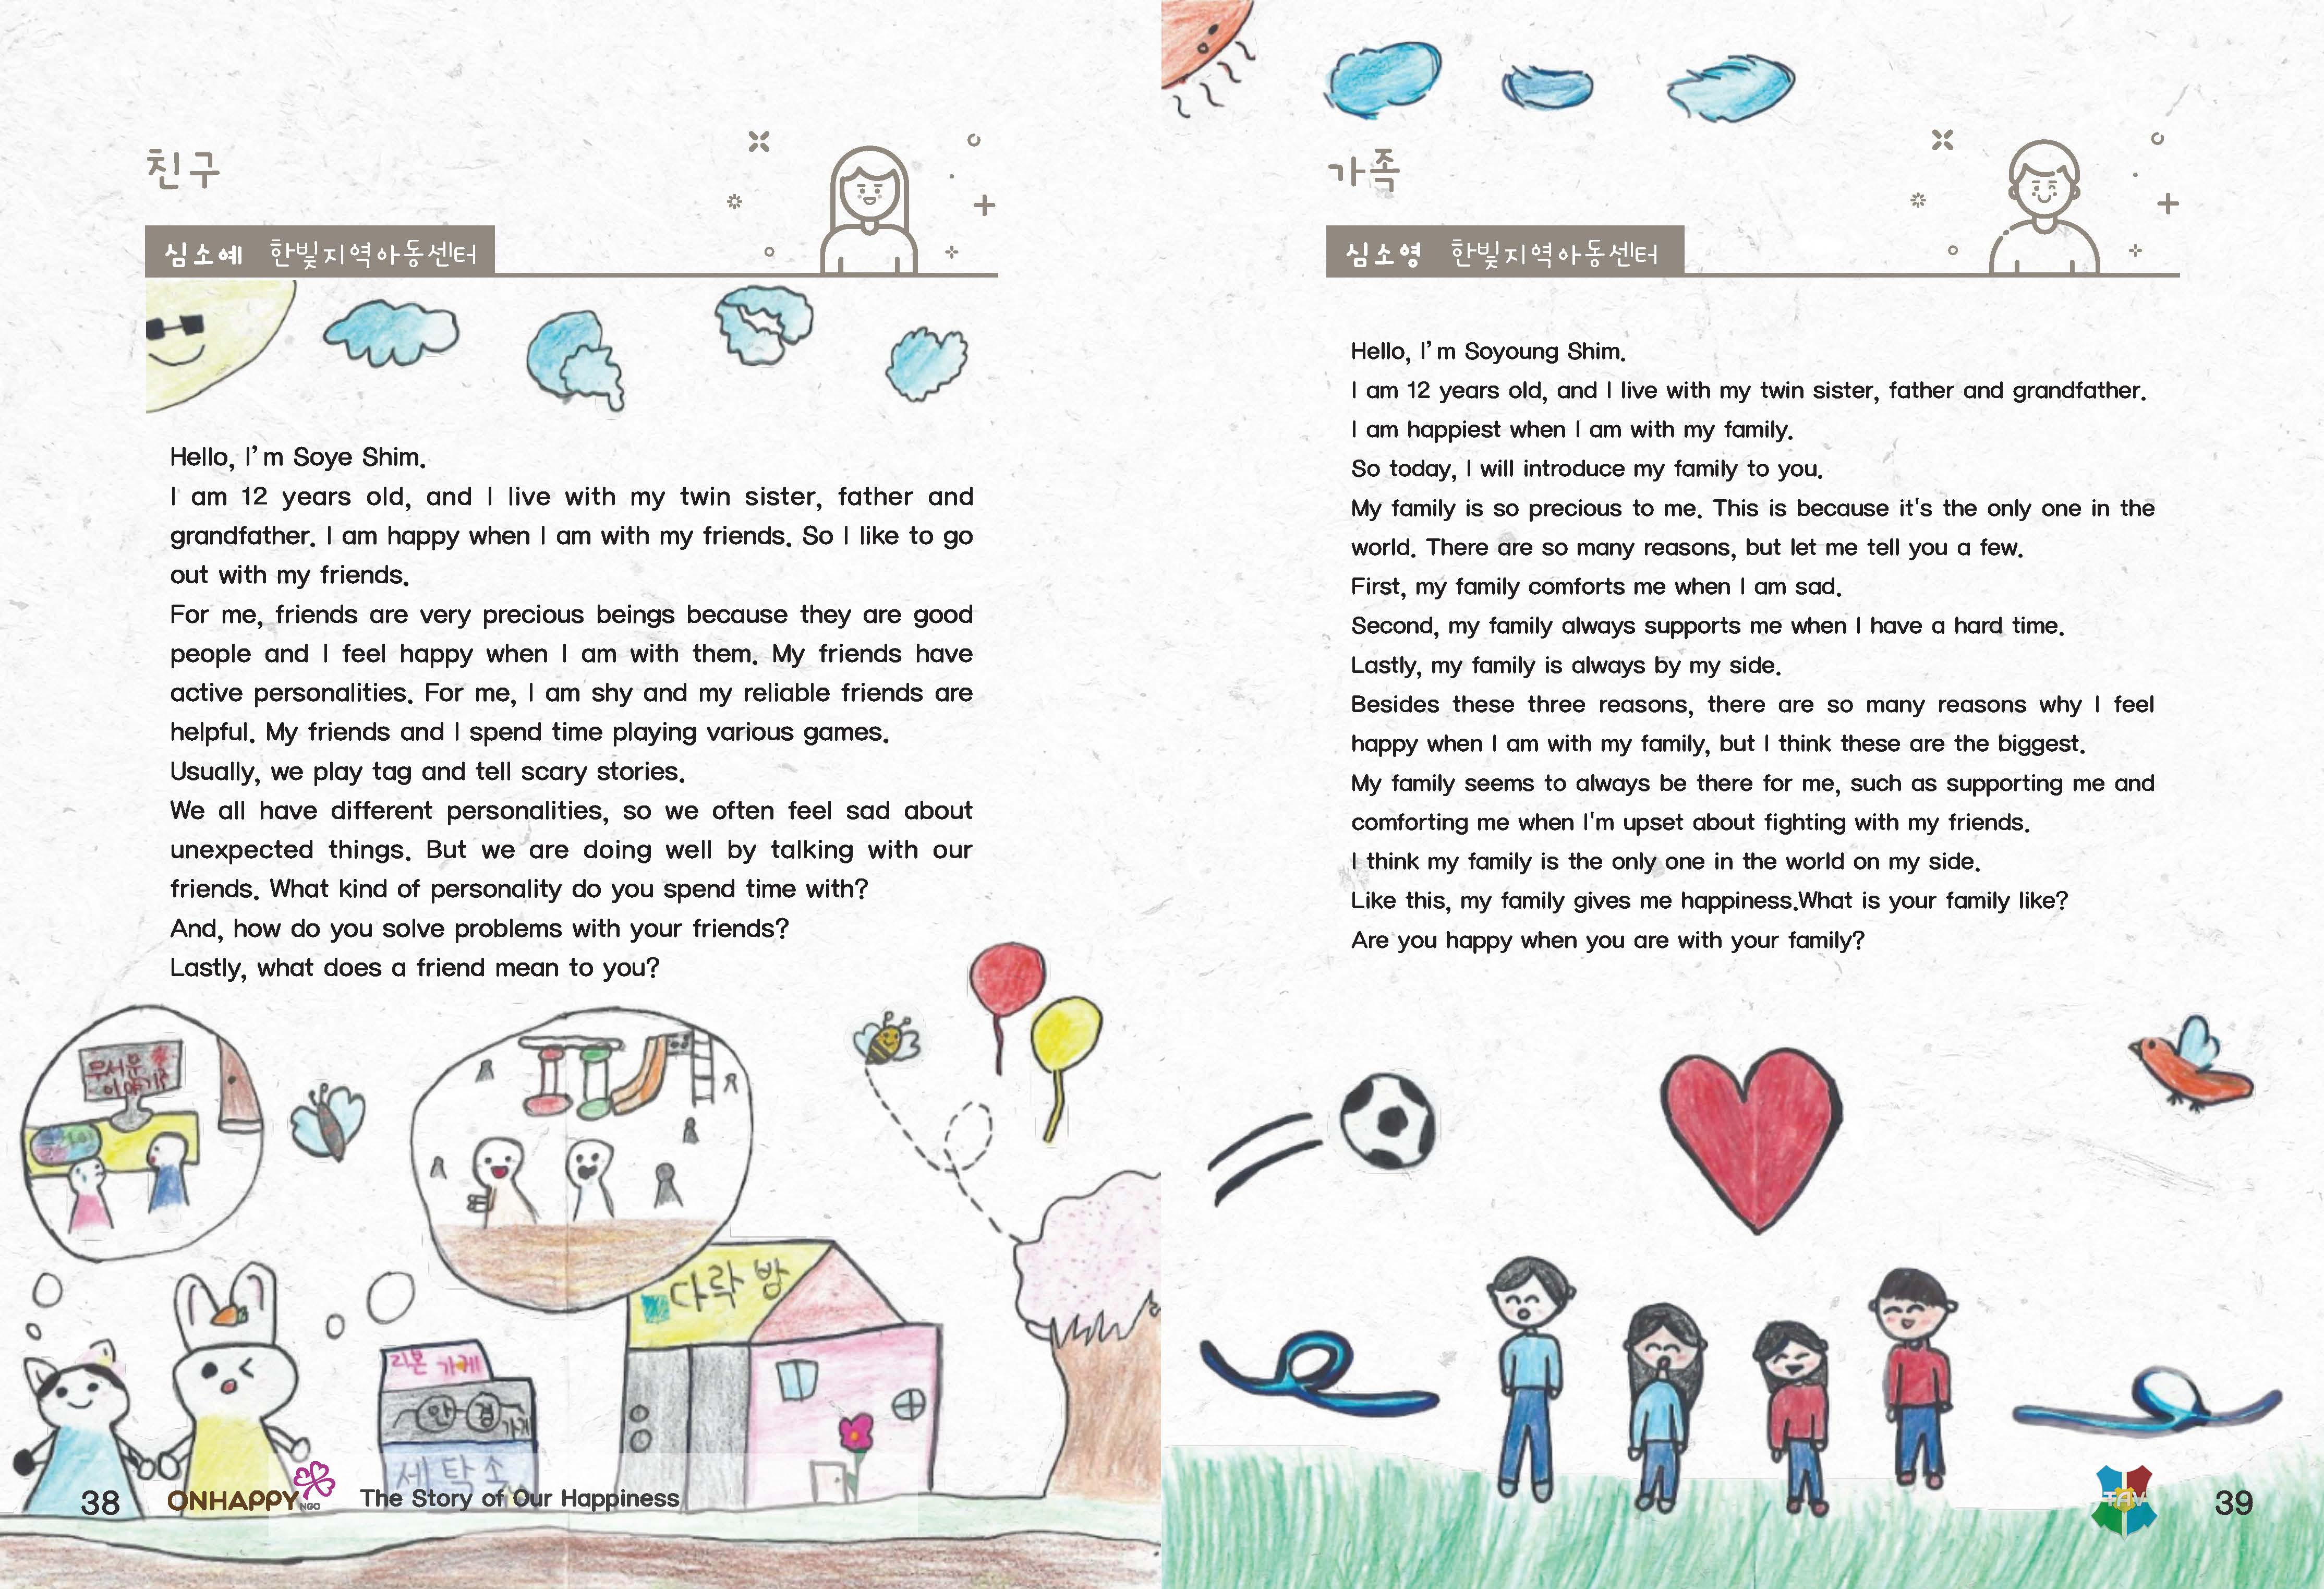 친구
심소예 한빛지역아동센터
Hello, I’m Soye Shim.
I am 12 years old, and I live with my twin sister, father and
grandfather. I am happy when I am with my friends. So I like to go
out with my friends.
For me, friends are very precious beings because they are good
people and I feel happy when I am with them. My friends have
active personalities. For me, I am shy and my reliable friends are
helpful. My friends and I spend time playing various games.
Usually, we play tag and tell scary stories.
We all have different personalities, so we often feel sad about
unexpected things. But we are doing well by talking with our
friends. What kind of personality do you spend time with?
And, how do you solve problems with your friends?
Lastly, what does a friend mean to you?
무서운
이야기
다락방
리본 가게
안경
가게
세탁소
38
ONHAPPY
NGO
The Story of Our Happiness
가족
심소영 한빛지역아동센터
Hello, I’m Soyoung Shim.
I am 12 years old, and I live with my twin sister, father and grandfather.
I am happiest when I am with my family.
So today, I will introduce my family to you.
My family is so precious to me. This is because it's the only one in the
world. There are so many reasons, but let me tell you a few.
First, my family comforts me when I am sad.
Second, my family always supports me when I have a hard time.
Lastly, my family is always by my side.
Besides these three reasons, there are so many reasons why I feel
happy when I am with my family, but I think these are the biggest.
My family seems to always be there for me, such as supporting me and
comforting me when I'm upset about fighting with my friends.
I think my family is the only one in the world on my side.
Like this, my family gives me happiness.What is your family like?
Are you happy when you are with your family?
TAV
39